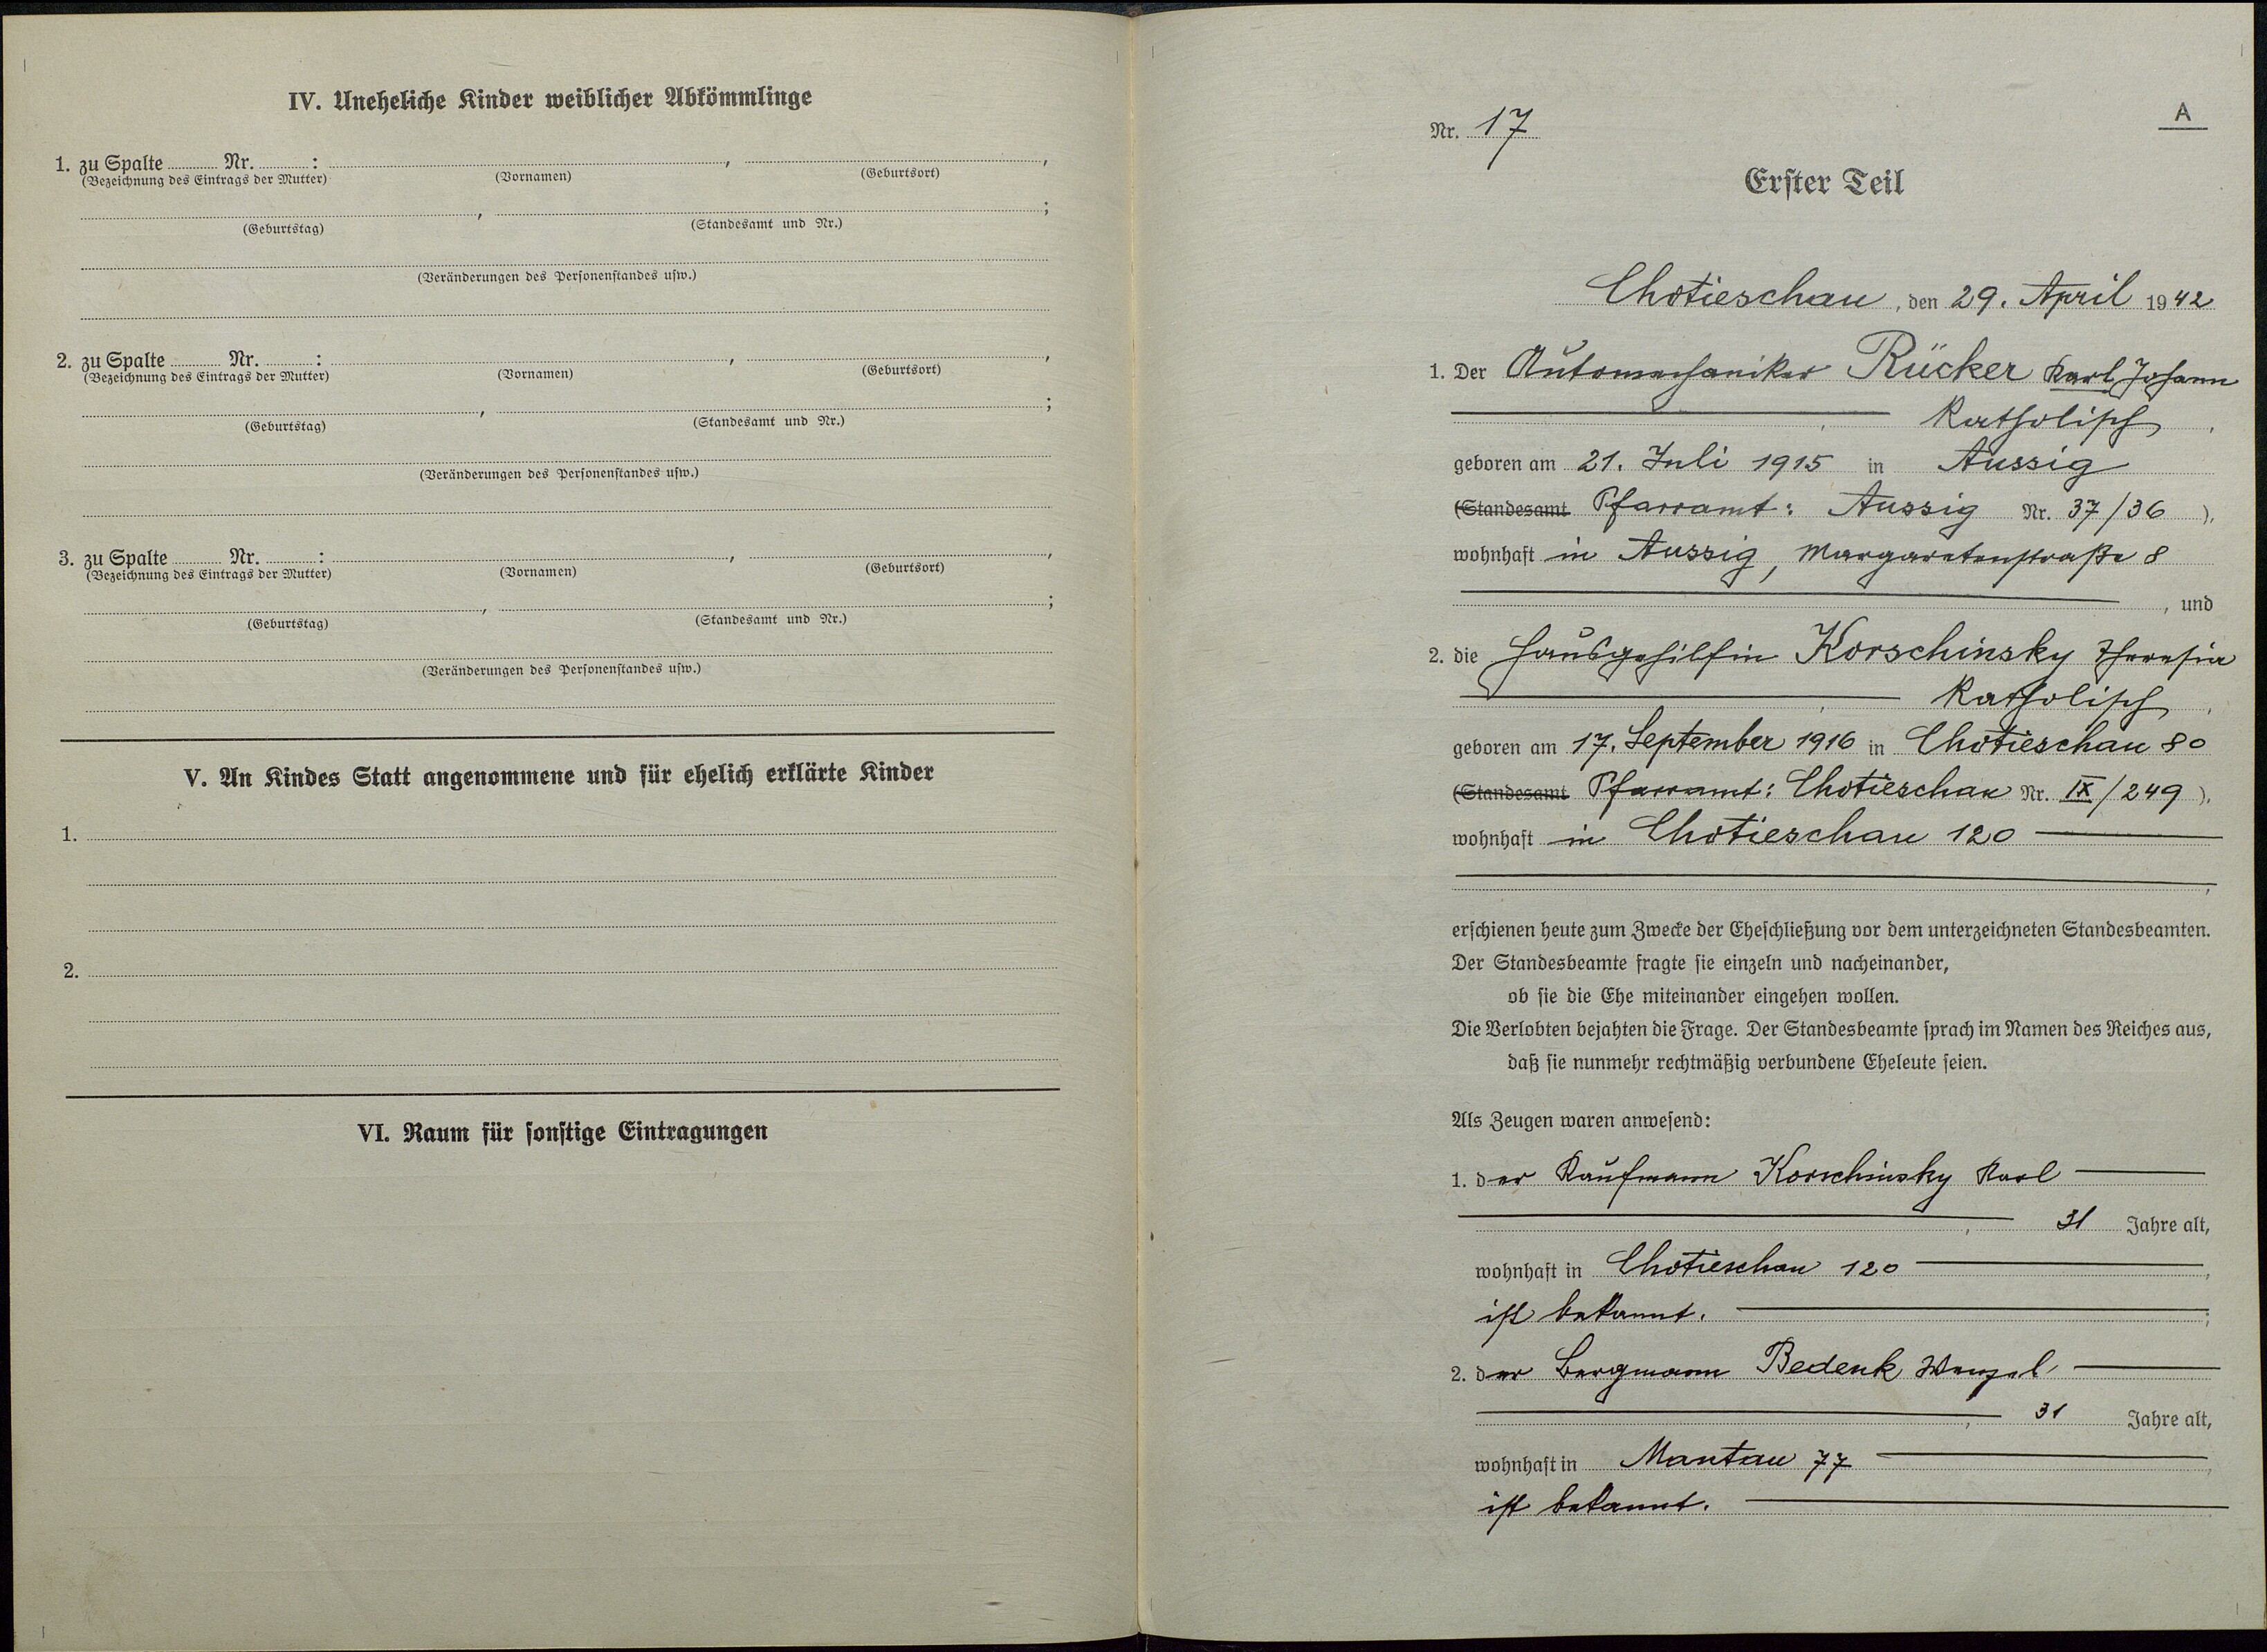 IV. Uneheliche Kinder weiblicher Abkömmlinge
1. zu Spalte Nr. : , ,
(Bezeichnung des Eintrags der Mutter) (Vornamen) (Geburtsort)
, ;
(Geburtstag) (Standesamt und Nr.)
(Veränderungen des Personenstandes usw.)
2. zu Spalte Nr. : , ,
(Bezeichnung des Eintrags der Mutter) (Vornamen) (Geburtsort)
, ;
(Geburtstag) (Standesamt und Nr.)
(Veränderungen des Personenstandes usw.)
3. zu Spalte Nr. : , ,
(Bezeichnung des Eintrags der Mutter) (Vornamen) (Geburtsort)
, ;
(Geburtstag) (Standesamt und Nr.)
(Veränderungen des Personenstandes usw.)
V. An Kindes Statt angenommene und für ehelich erklärte Kinder
1.
2.
VI. Raum für sonstige Eintragungen
A
Nr. 17
Erster Teil
Chotieschau, den 29. April 1942
1. Der Automechaniker Rücker Karl Johann
katholisch,
geboren am 21. Juli 1915 in Aussig
(Standesamt Pfarramt: Aussig Nr. 37/36),
wohnhaft in Aussig, Margaretenstraße 8
, und
2. die Hausgehilfin Korschinsky Theresia
katholisch,
geboren am 17. September 1916 in Chotieschau 80
(Standesamt Pfarramt: Chotieschau Nr. IX/249),
wohnhaft in Chotieschau 120
,
erschienen heute zum Zwecke der Eheschließung vor dem unterzeichneten Standesbeamten.
Der Standesbeamte fragte sie einzeln und nacheinander,
ob sie die Ehe miteinander eingehen wollen.
Die Verlobten bejahten die Frage. Der Standesbeamte sprach im Namen des Reiches aus,
daß sie nunmehr rechtmäßig verbundene Eheleute seien.
Als Zeugen waren anwesend:
1. der Kaufmann Korschinsky Karl
, 31 Jahre alt,
wohnhaft in Chotieschau 120,
ist bekannt. ;
2. der Bergmann Bedenk Wenzel
, 31 Jahre alt,
wohnhaft in Mantau 77,
ist bekannt.